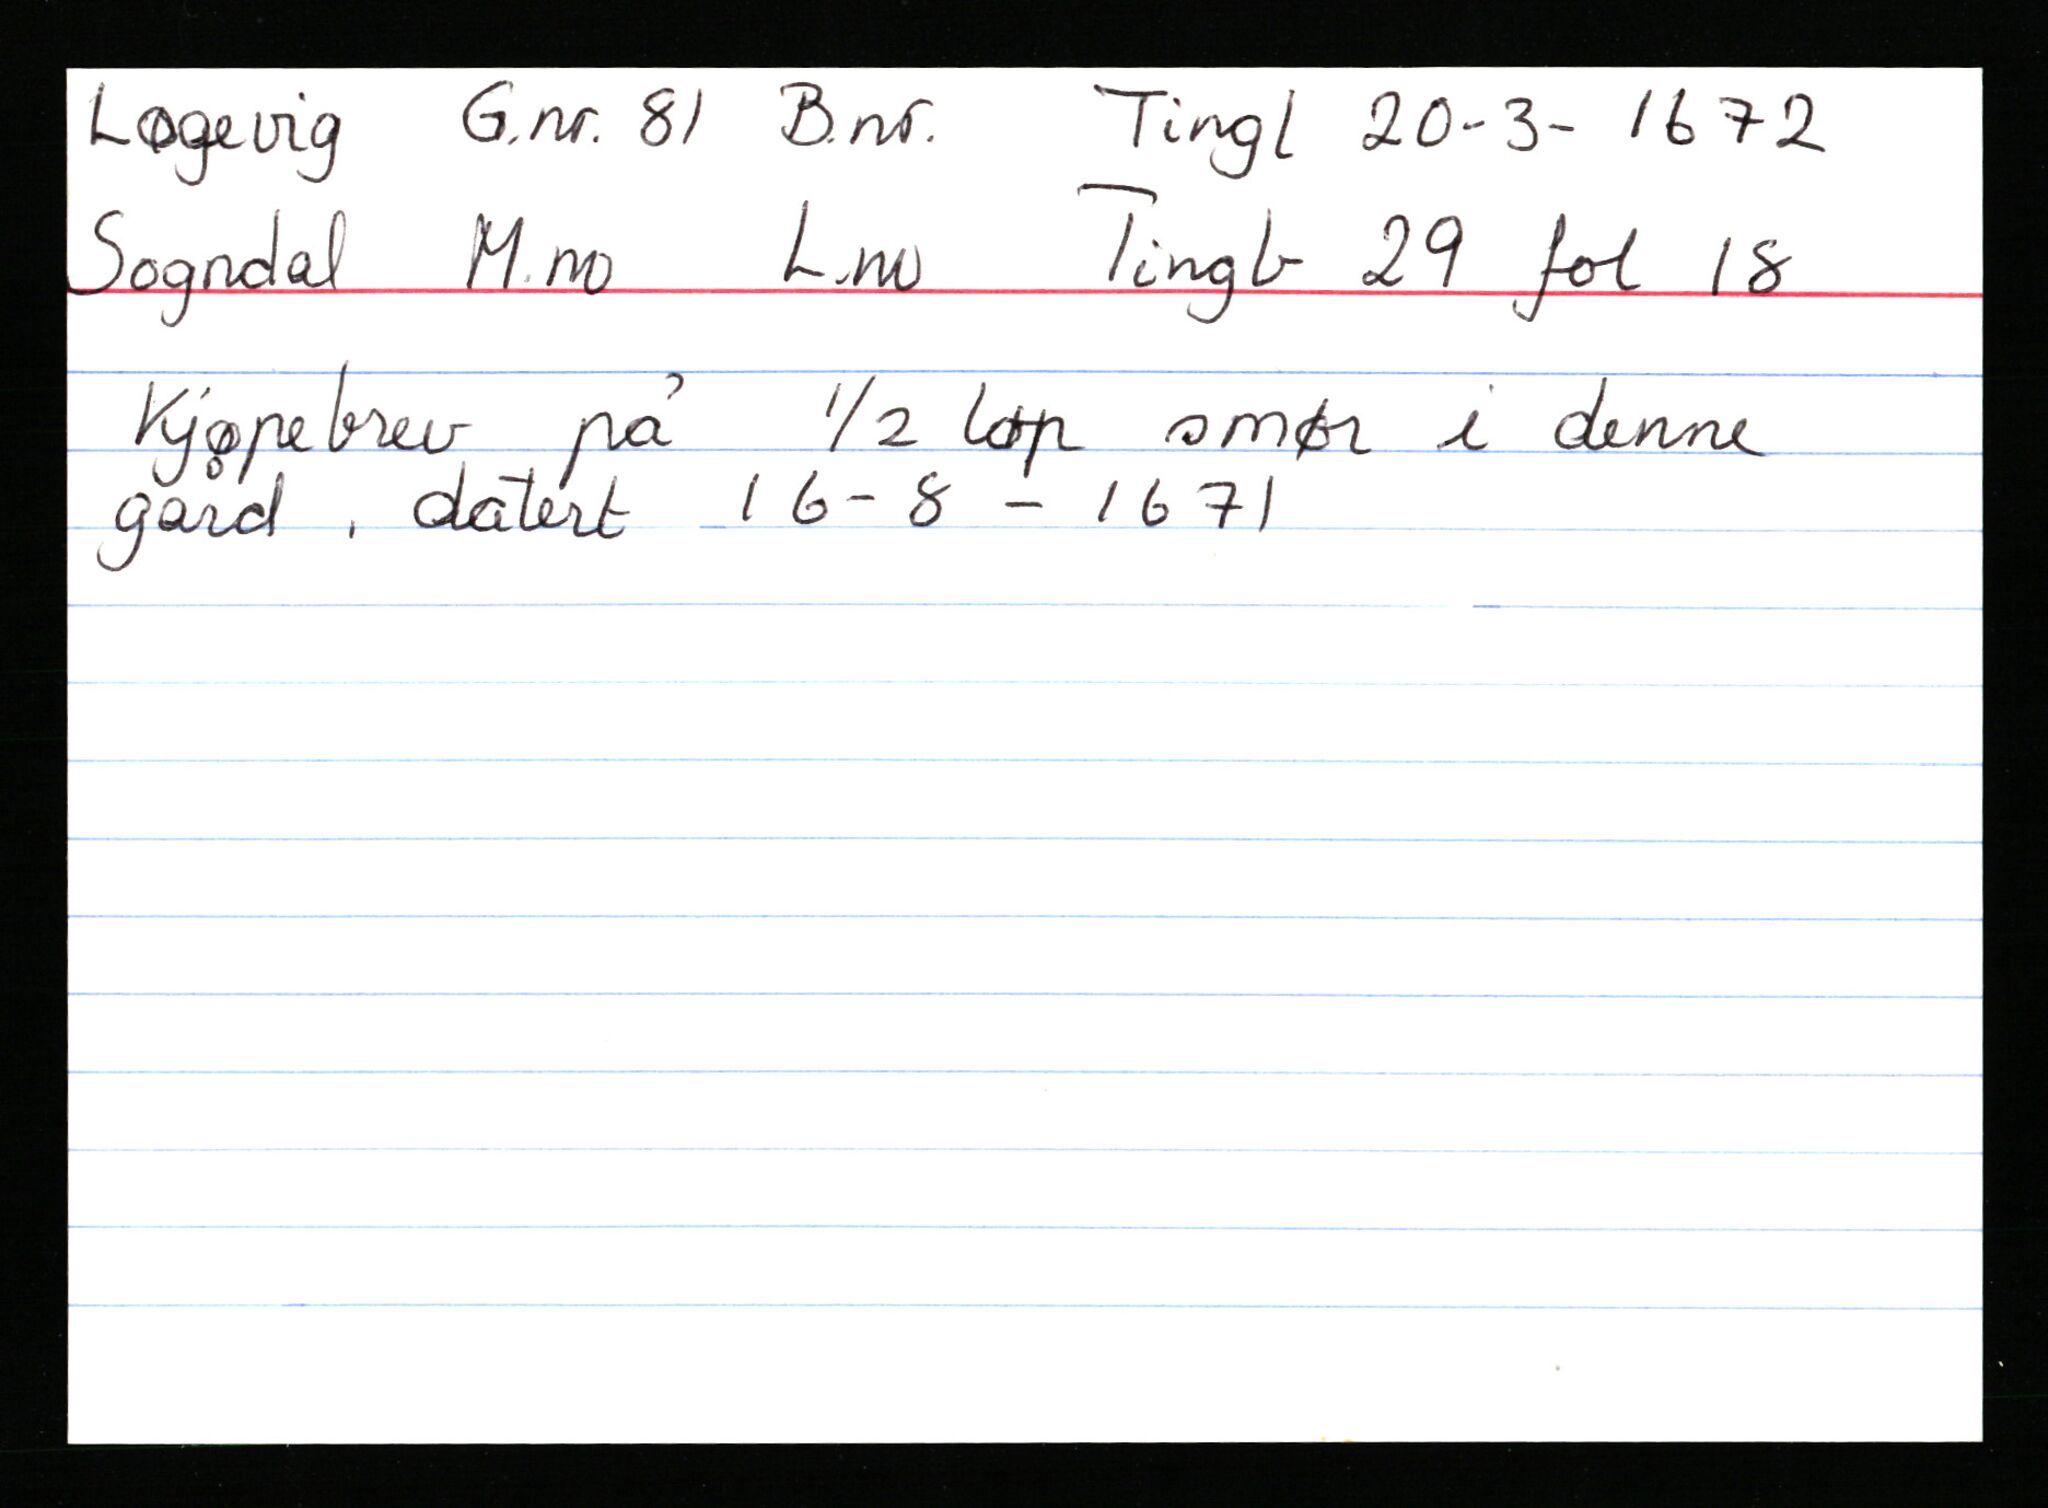 Løgevig G.nr. 81 B.nr. Tingl 20-3-1672
Sogndal M.no L.no Tingb 29 fol 18
Kjøpebrev på 1/2 løp smør i denne
gård, datert 16-8-1671